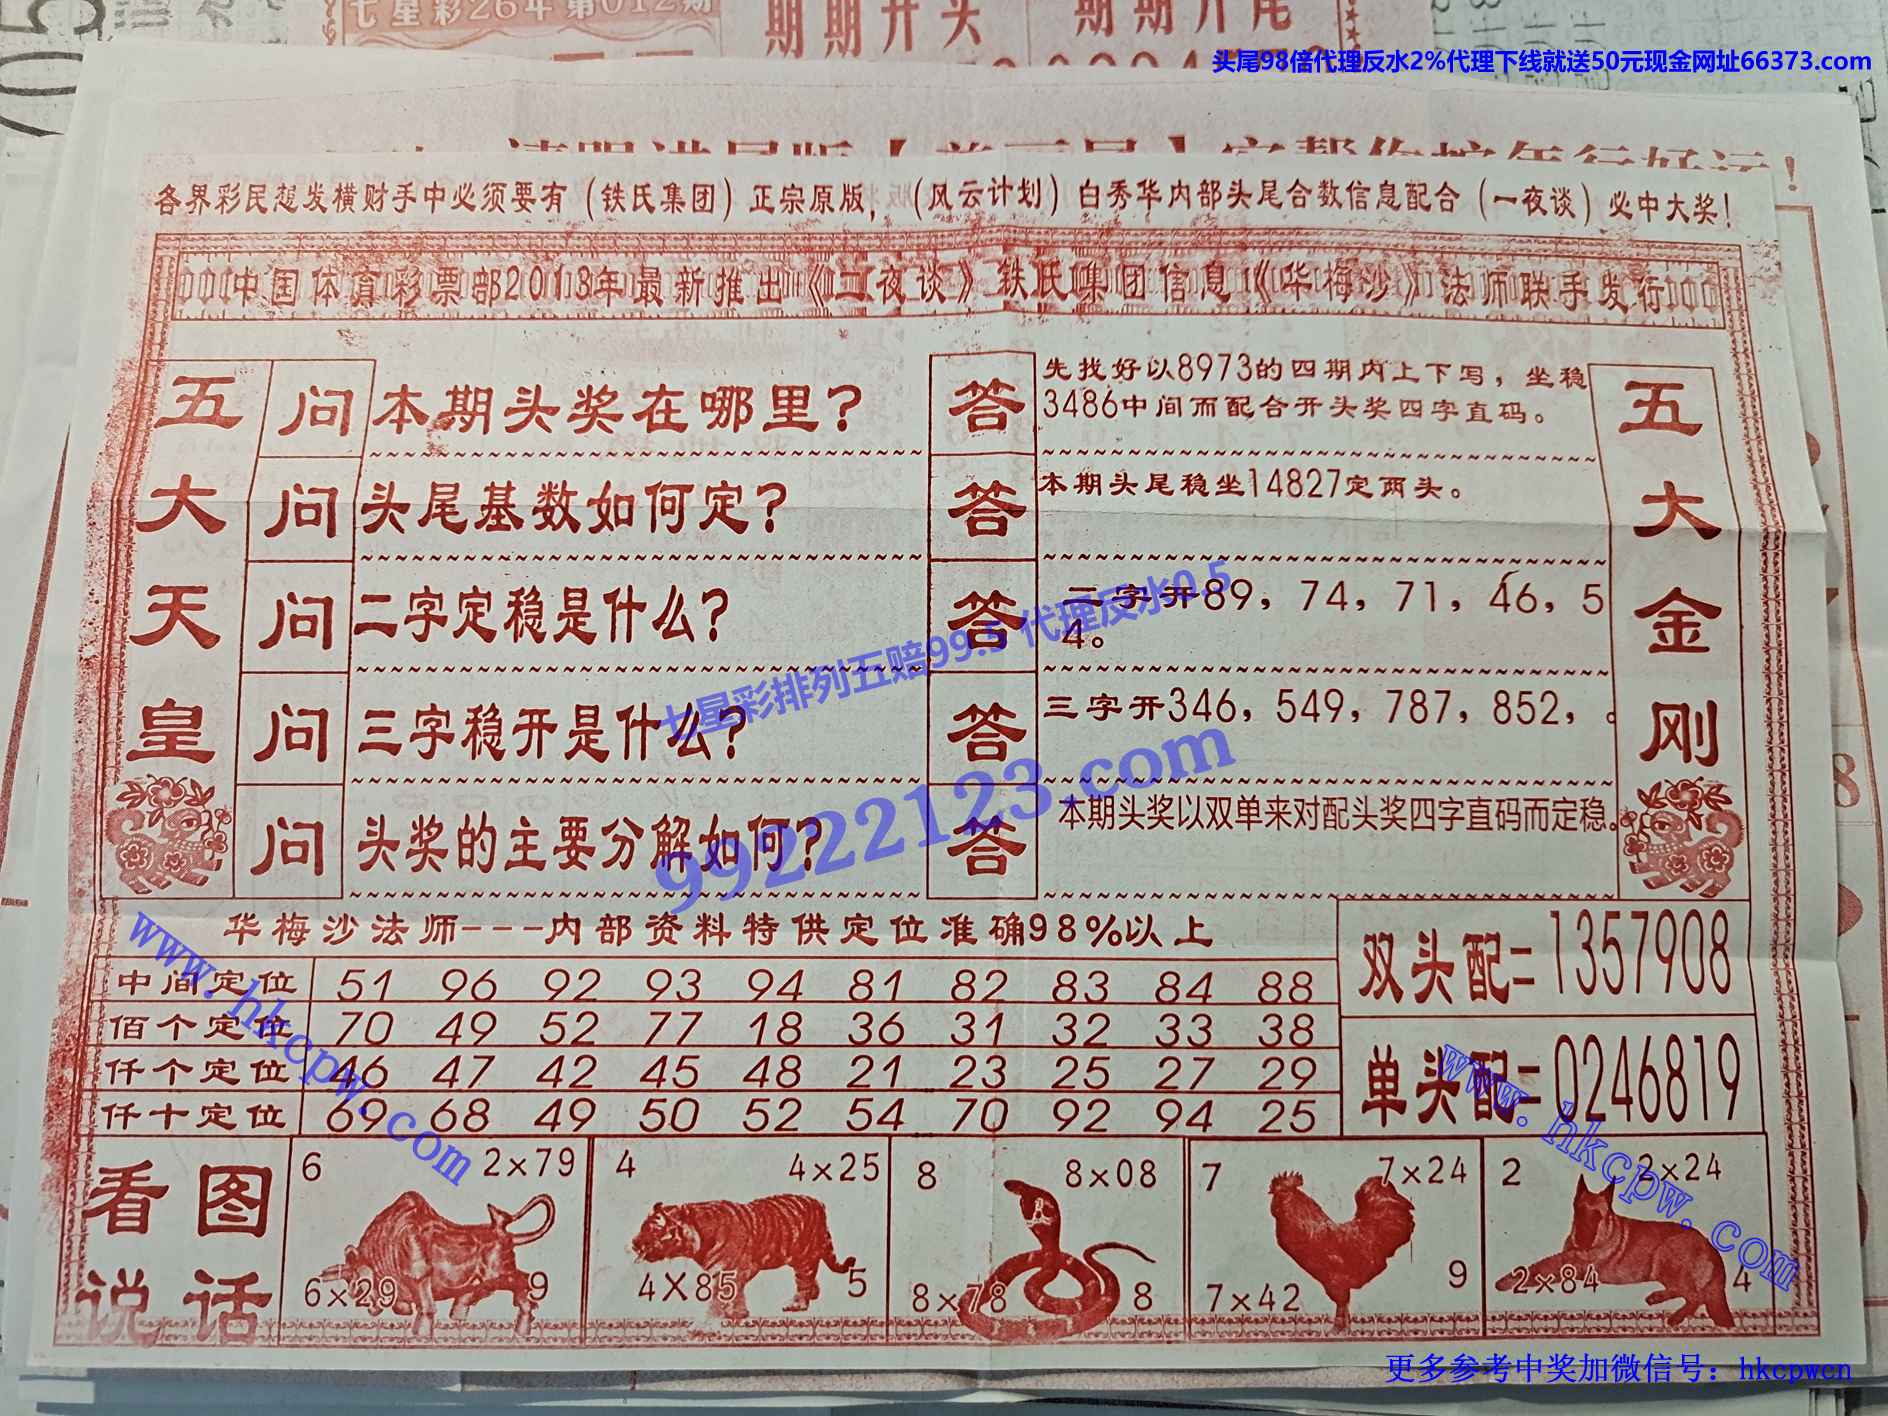 七星彩26年第012期
期期开头
期期开尾
头尾98倍代理反水2%代理下线就送50元现金网址66373.com
各界彩民想发横财手中必须要有（铁氏集团）正宗原版，（风云计划）白秀华内部头尾合数信息配合（一夜谈）必中大奖！
中国体育彩票部2013年最新推出《二夜谈》铁氏集团信息《华梅沙》法师联手发行
五大天皇
问 本期头奖在哪里？
答 先找好以8973的四期内上下写，坐稳
3486中间而配合开头奖四字直码。
问 头尾基数如何定？
答 本期头尾稳坐14827定两头。
问 二字定稳是什么？
答 二字开89，74，71，46，5
4。
问 三字稳开是什么？
答 三字开346，549，787，852，。
问 头奖的主要分解如何？
答 本期头奖以双单来对配头奖四字直码而定稳。
五大金刚
七星彩排列五赔99.5 代理反水0.5
99222123.com
华梅沙法师---内部资料特供定位准确98%以上
中间定位 51 96 92 93 94 81 82 83 84 88
佰个定位 70 49 52 77 18 36 31 32 33 38
仟个定位 46 47 42 45 48 21 23 25 27 29
仟十定位 69 68 49 50 52 54 70 92 94 25
双头配=1357908
单头配=0246819
www.hkcpw.com
www.hkcpw.com
看图
说话
6 2×79
6×29 9
4 4×25
4×85 5
8 8×08
8×78 8
7 7×24
7×42 9
2 2×24
2×84 4
更多参考中奖加微信号：hkcpwcn